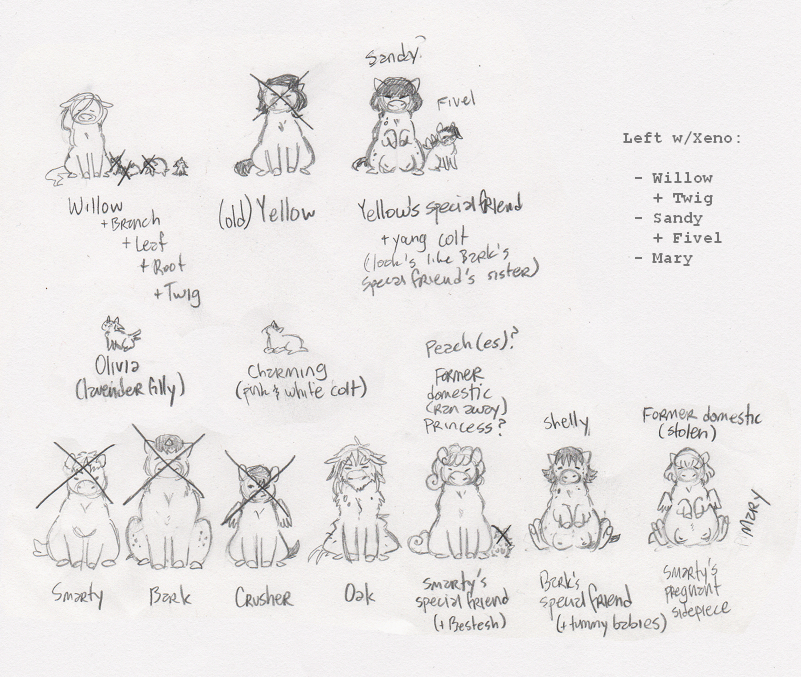 Sandy?
Fivel
Left w/Xeno:
- Willow
+ Twig
- Sandy
+ Fivel
- Mary
Willow
+ Branch
+ Leaf
+ Root
+ Twig
(old) Yellow
Yellow's special friend
+ young colt
(look's like Bark's
special friend's sister)
Olivia
(lavender filly)
Charming
(pink & white colt)
Peach(es)?
Former
domestic
(ran away)
Princess?
Shelly
Former domestic
(stolen)
Mary
Smarty
Bark
Crusher
Oak
Smarty's
special friend
(+ Bestesh)
Bark's
special friend
(+ tummy babies)
Smarty's
pregnant
sidepiece